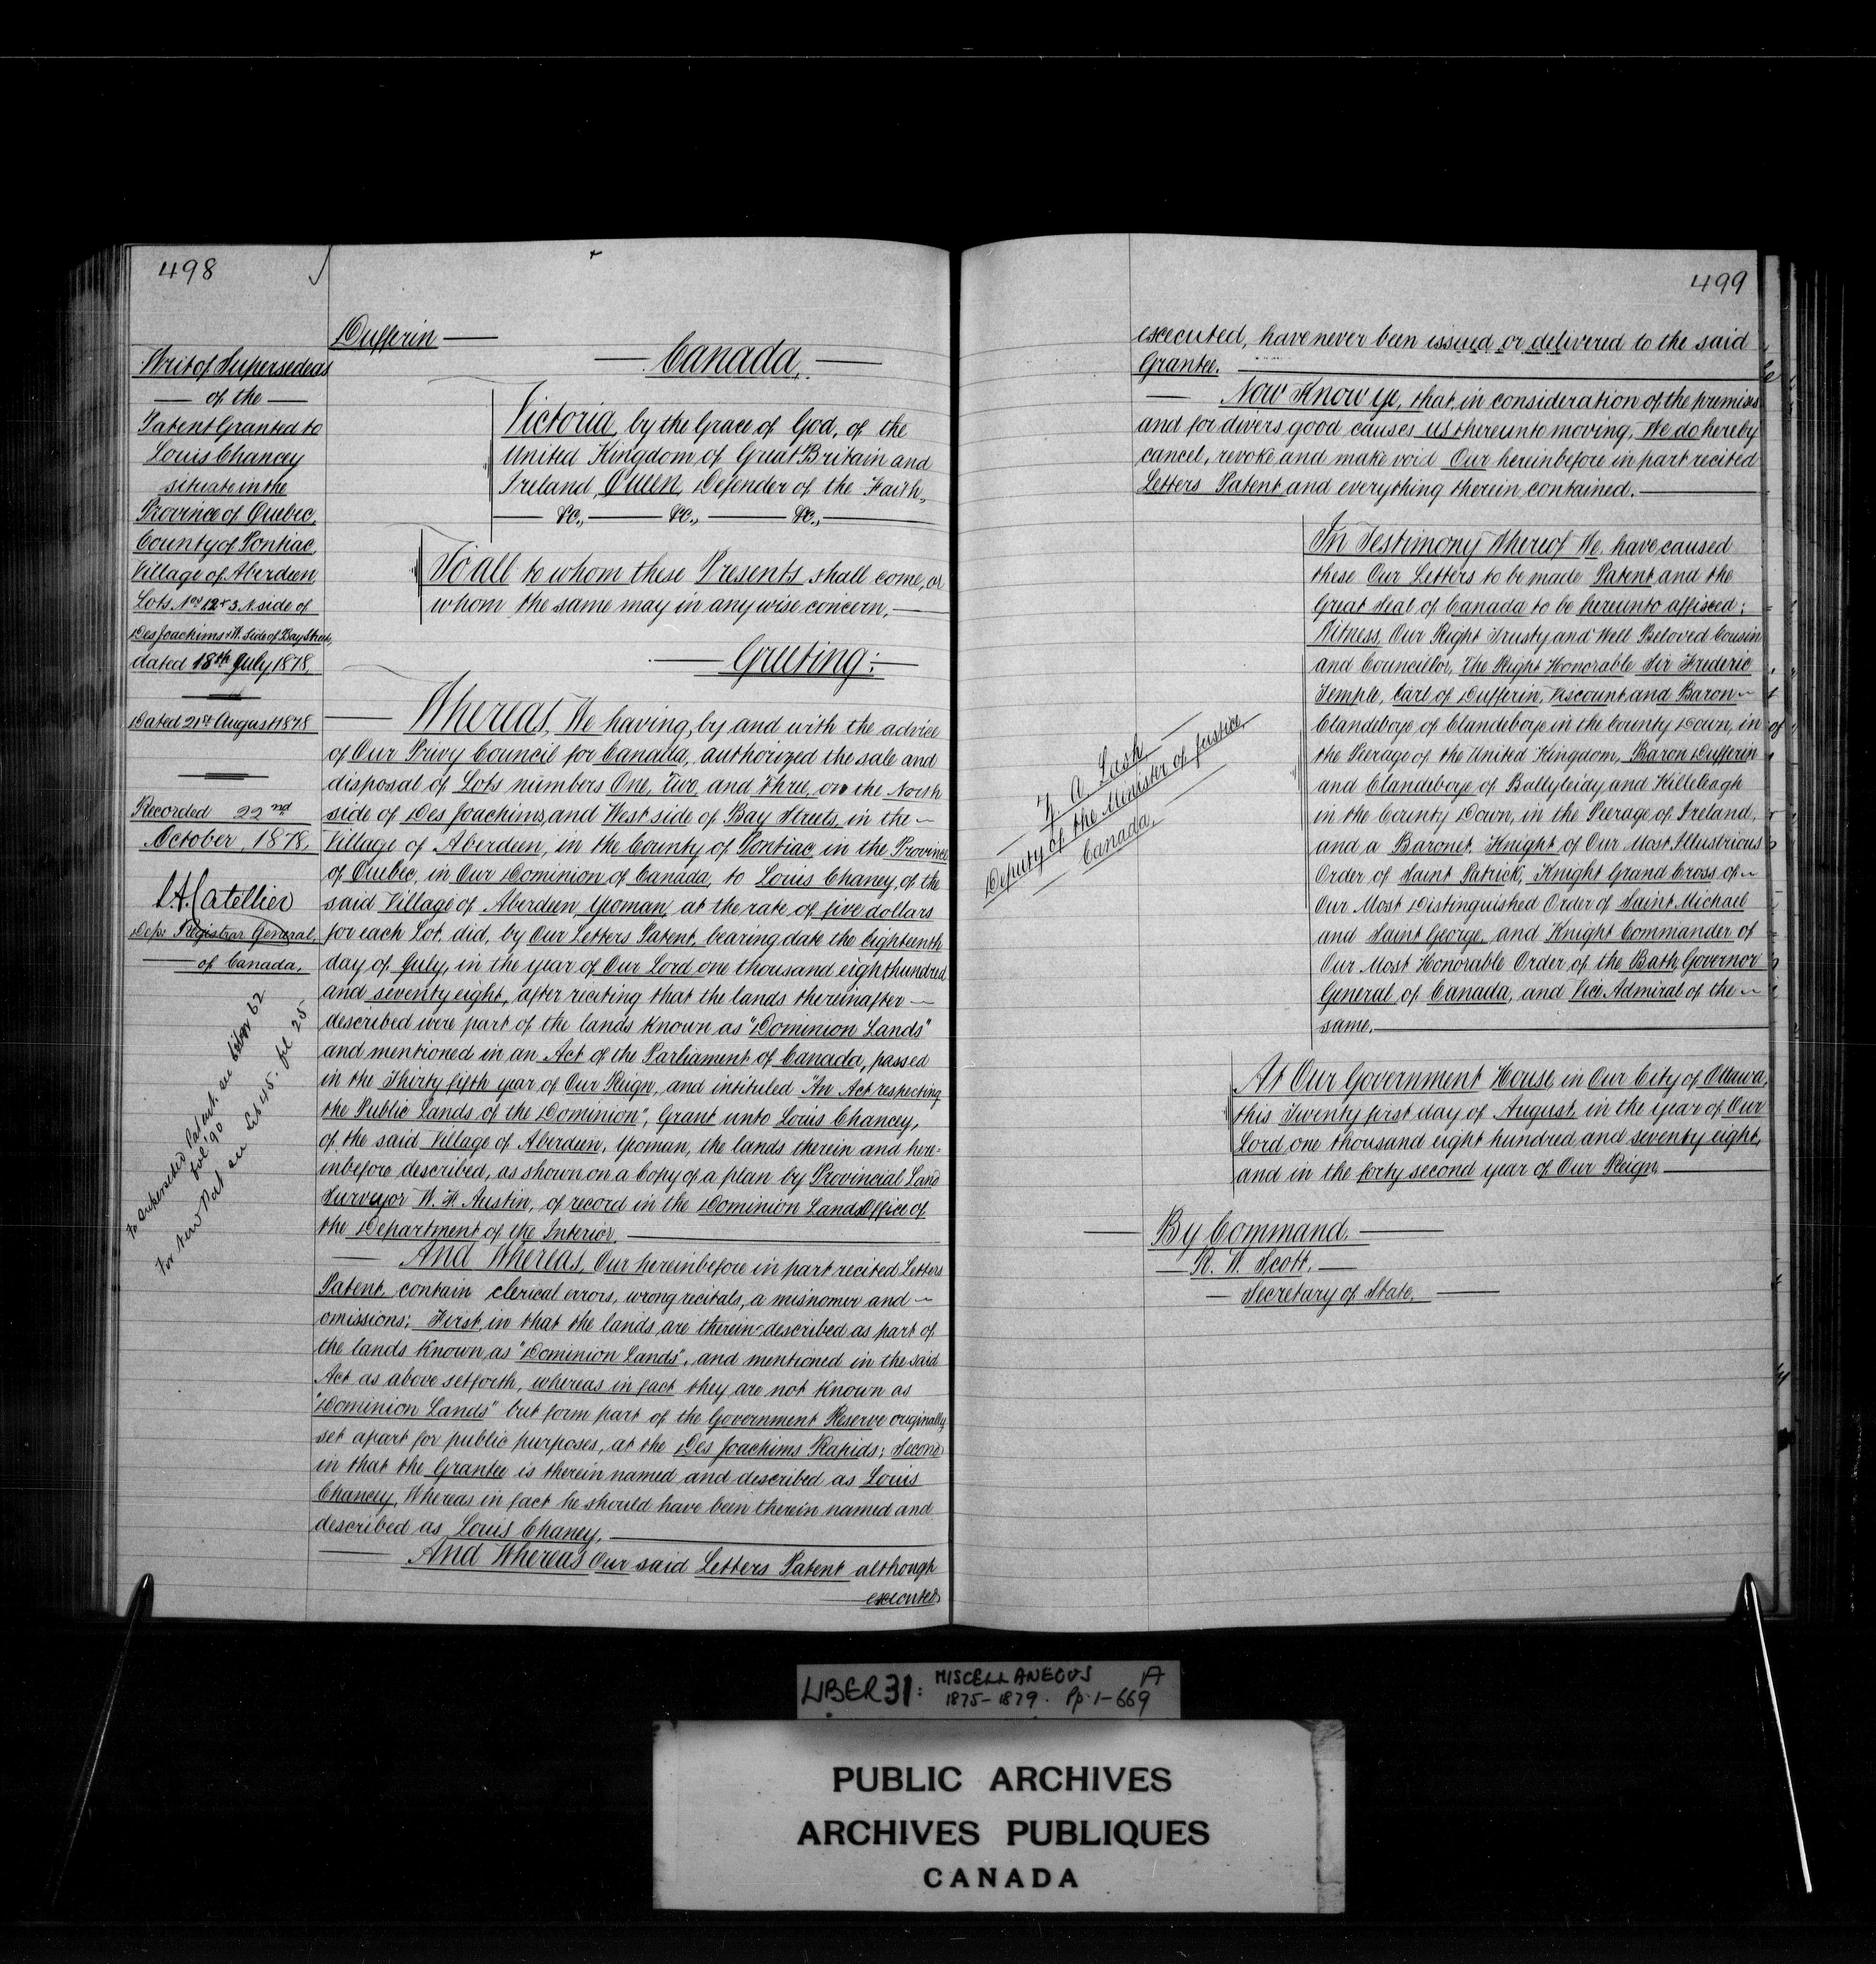 498
Writ of Supersedeas
of the
Patent Granted to
Louis Chancey
situate in the
Province of Quebec,
County of Pontiac,
Village of Aberdeen
Lots Nos 1 2 + 3 N. side of
Des Joachims + W. Side of Bay Street,
dated 18th July, 1878,
Dated 21st August 1878
Recorded 22nd
October, 1878,
L. A. Catellier
Depy Registrar General,
of Canada,
For Superseded Patent. see Liber 62
fol 90
For New Pat see Lib 45. fol 25
Dufferin
Canada,
Victoria, by the Grace of God, of the
United Kingdom of Great Britain and
Ireland, Queen, Defender of the Faith,
&c., &c., &c.,
To all to whom these Presents shall come, or
whom the same may in any wise concern,
Greeting:
Whereas, We having, by and with the advice
of Our Privy Council for Canada, authorized the sale and
disposal of Lots numbers One, Two and Three, on the North
side of Des Joachims, and West side of Bay Streets, in the
Village of Aberdeen, in the County of Pontiac, in the Province
of Quebec, in Our Dominion of Canada, to Louis Chaney, of the
said Village of Aberdeen, Yoman, at the rate of five dollars
for each Lot, did, by Our Letters Patent, bearing date the Eighteenth
day of July, in the year of Our Lord one thousand eight hundred
and seventy eight, after reciting that the lands thereinafter
described were part of the lands known as "Dominion Lands"
and mentioned in an Act of the Parliament of Canada, passed
in the Thirty fifth year of Our Reign, and intituled "An Act respecting
the Public Lands of the Dominion", Grant unto Louis Chancey,
of the said Village of Aberdeen, Yoman, the lands therein and here=
inbefore described, as shown on a Copy of a plan by Provincial Land
Surveyor W. F. Austin, of record in the Dominion Lands Office of
the Department of the Interior.
And Whereas, Our hereinbefore in part recited Letters
Patent, contain clerical errors, wrong recitals, a misnomer and
omissions; First, in that the lands, are therein described as part of
the lands known as "Dominion Lands", and mentioned in the said
Act as above set forth, whereas in fact they are not known as
"Dominion Lands" but form part of the Government Reserve originally
set apart for public purposes, at the Des Joachims Rapids; Second
in that the Grantee is therein named and described as Louis
Chancey, Whereas in fact he should have been therein named and
described as Louis Chaney,
And Whereas Our said Letters Patent although
executed
499
executed, have never been issued or delivered to the said
Grantee.
Now Know ye, that, in consideration of the premises
and for divers good causes us thereunto moving, We do hereby
cancel, revoke and make void Our hereinbefore in part recited
Letters Patent and everything therein contained.
Z A Lash
Deputy of the Minister of Justice,
Canada,
In Testimony Whereof We, have caused
these Our Letters to be made Patent and the
Great Seal of Canada to be hereunto affixed;
Witness, Our Right Trusty and Well Beloved Cousin
and Councillor, The Right Honorable Sir Frederic
Temple, Earl of Dufferin, Viscount and Baron
Clandeboye of Clandeboye in the County Down, in
the Peerage of the United Kingdom, Baron Dufferin
and Clandeboye of Ballyleidy and Killeleagh
in the County Down, in the Peerage of Ireland,
and a Baronet, Knight of Our Most Illustrious
Order of Saint Patrick, Knight Grand Cross of
Our Most Distinguished Order of Saint Michael
and Saint George, and Knight Commander of
Our Most Honorable Order of the Bath, Governor
General of Canada, and Vice Admiral of the
same.
At Our Government House, in Our City of Ottawa,
this Twenty first day of August, in the year of Our
Lord one thousand eight hundred and seventy eight,
and in the forty second year of Our Reign,
By Command,
R. W. Scott,
Secretary of State,
LIBER 31: MISCELLANEOUS A
1875-1879. Pp. 1-669
PUBLIC ARCHIVES
ARCHIVES PUBLIQUES
CANADA